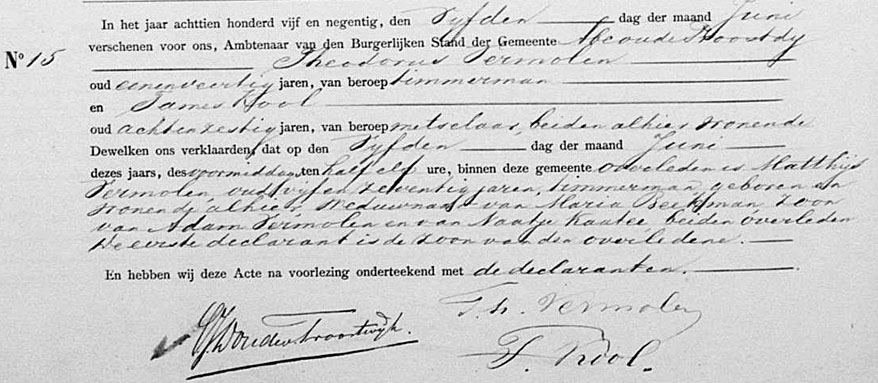 In het jaar achttien honderd vijf en negentig, den Vijfden dag der maand Juni
No 15 verschenen voor ons, Ambtenaar van den Burgerlijken Stand der Gemeente Abcoude Proostdy
Theodorus Vermolen
oud eenenveertig jaren, van beroep timmerman
en James Kool
oud achtenzestig jaren, van beroep metselaar, beiden alhier wonende
Dewelken ons verklaarden, dat op den Vijfden dag der maand Juni
dezes jaars, des voormiddags ten half elf ure, binnen deze gemeente overleden is Matthijs
Vermolen, oud vijf en zeventig jaren, timmerman, geboren en
wonende alhier, weduwnaar van Maria Beekman, zoon
van Adam Vermolen en van Naatje Kaatee, beiden overleden
De eerste declarant is de zoon van den overledene.
En hebben wij deze Acte na voorlezing onderteekend met de declaranten.
Th. Vermolen
Woudenbroostwijk.
J. Kool.